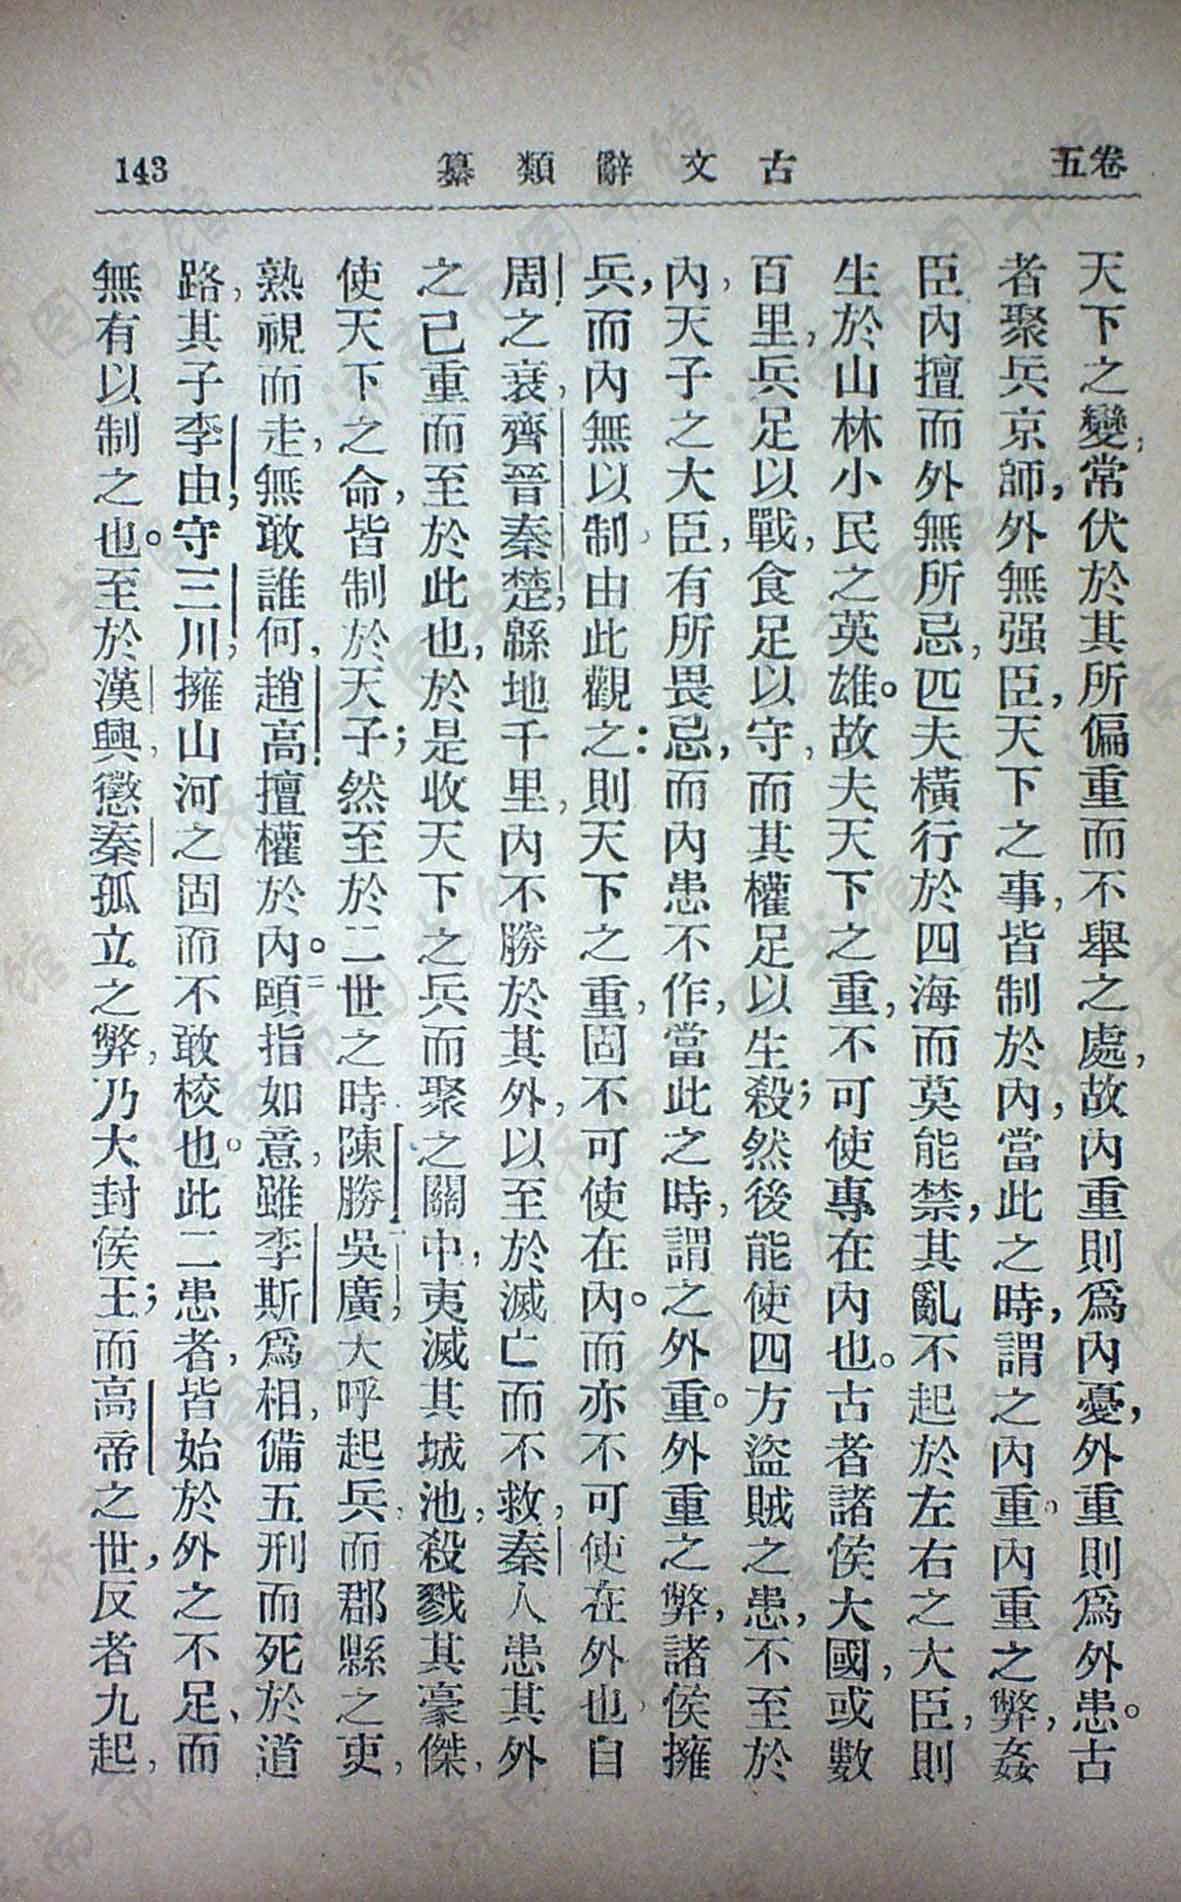 卷五
古文辭類纂
143
天下之變，常伏於其所偏重而不舉之處，故內重則爲內憂，外重則爲外患。古
者聚兵京師，外無强臣，天下之事，皆制於內，當此之時，謂之內重。內重之弊，姦
臣內擅而外無所忌，匹夫橫行於四海而莫能禁，其亂不起於左右之大臣，則
生於山林小民之英雄。故夫天下之重，不可使專在內也。古者諸侯大國，或數
百里，兵足以戰，食足以守，而其權足以生殺；然後能使四方盜賊之患，不至於
內，天子之大臣，有所畏忌，而內患不作，當此之時，謂之外重。外重之弊，諸侯擁
兵，而內無以制，由此觀之：則天下之重，固不可使在內。而亦不可使在外也，自
周之衰，齊晉秦楚，緜地千里，內不勝於其外，以至於滅亡而不救，秦人患其外
之己重而至於此也，於是收天下之兵而聚之關中，夷滅其城池，殺戮其豪傑，
使天下之命，皆制於天子；然至於二世之時，陳勝吳廣，大呼起兵，而郡縣之吏，
熟視而走，無敢誰何，趙高擅權於內。頤指如意，雖李斯爲相，備五刑而死於道
路，其子李由，守三川，擁山河之固而不敢校也。此二患者，皆始於外之不足，而
無有以制之也。至於漢興，懲秦孤立之弊，乃大封侯王；而高帝之世，反者九起，